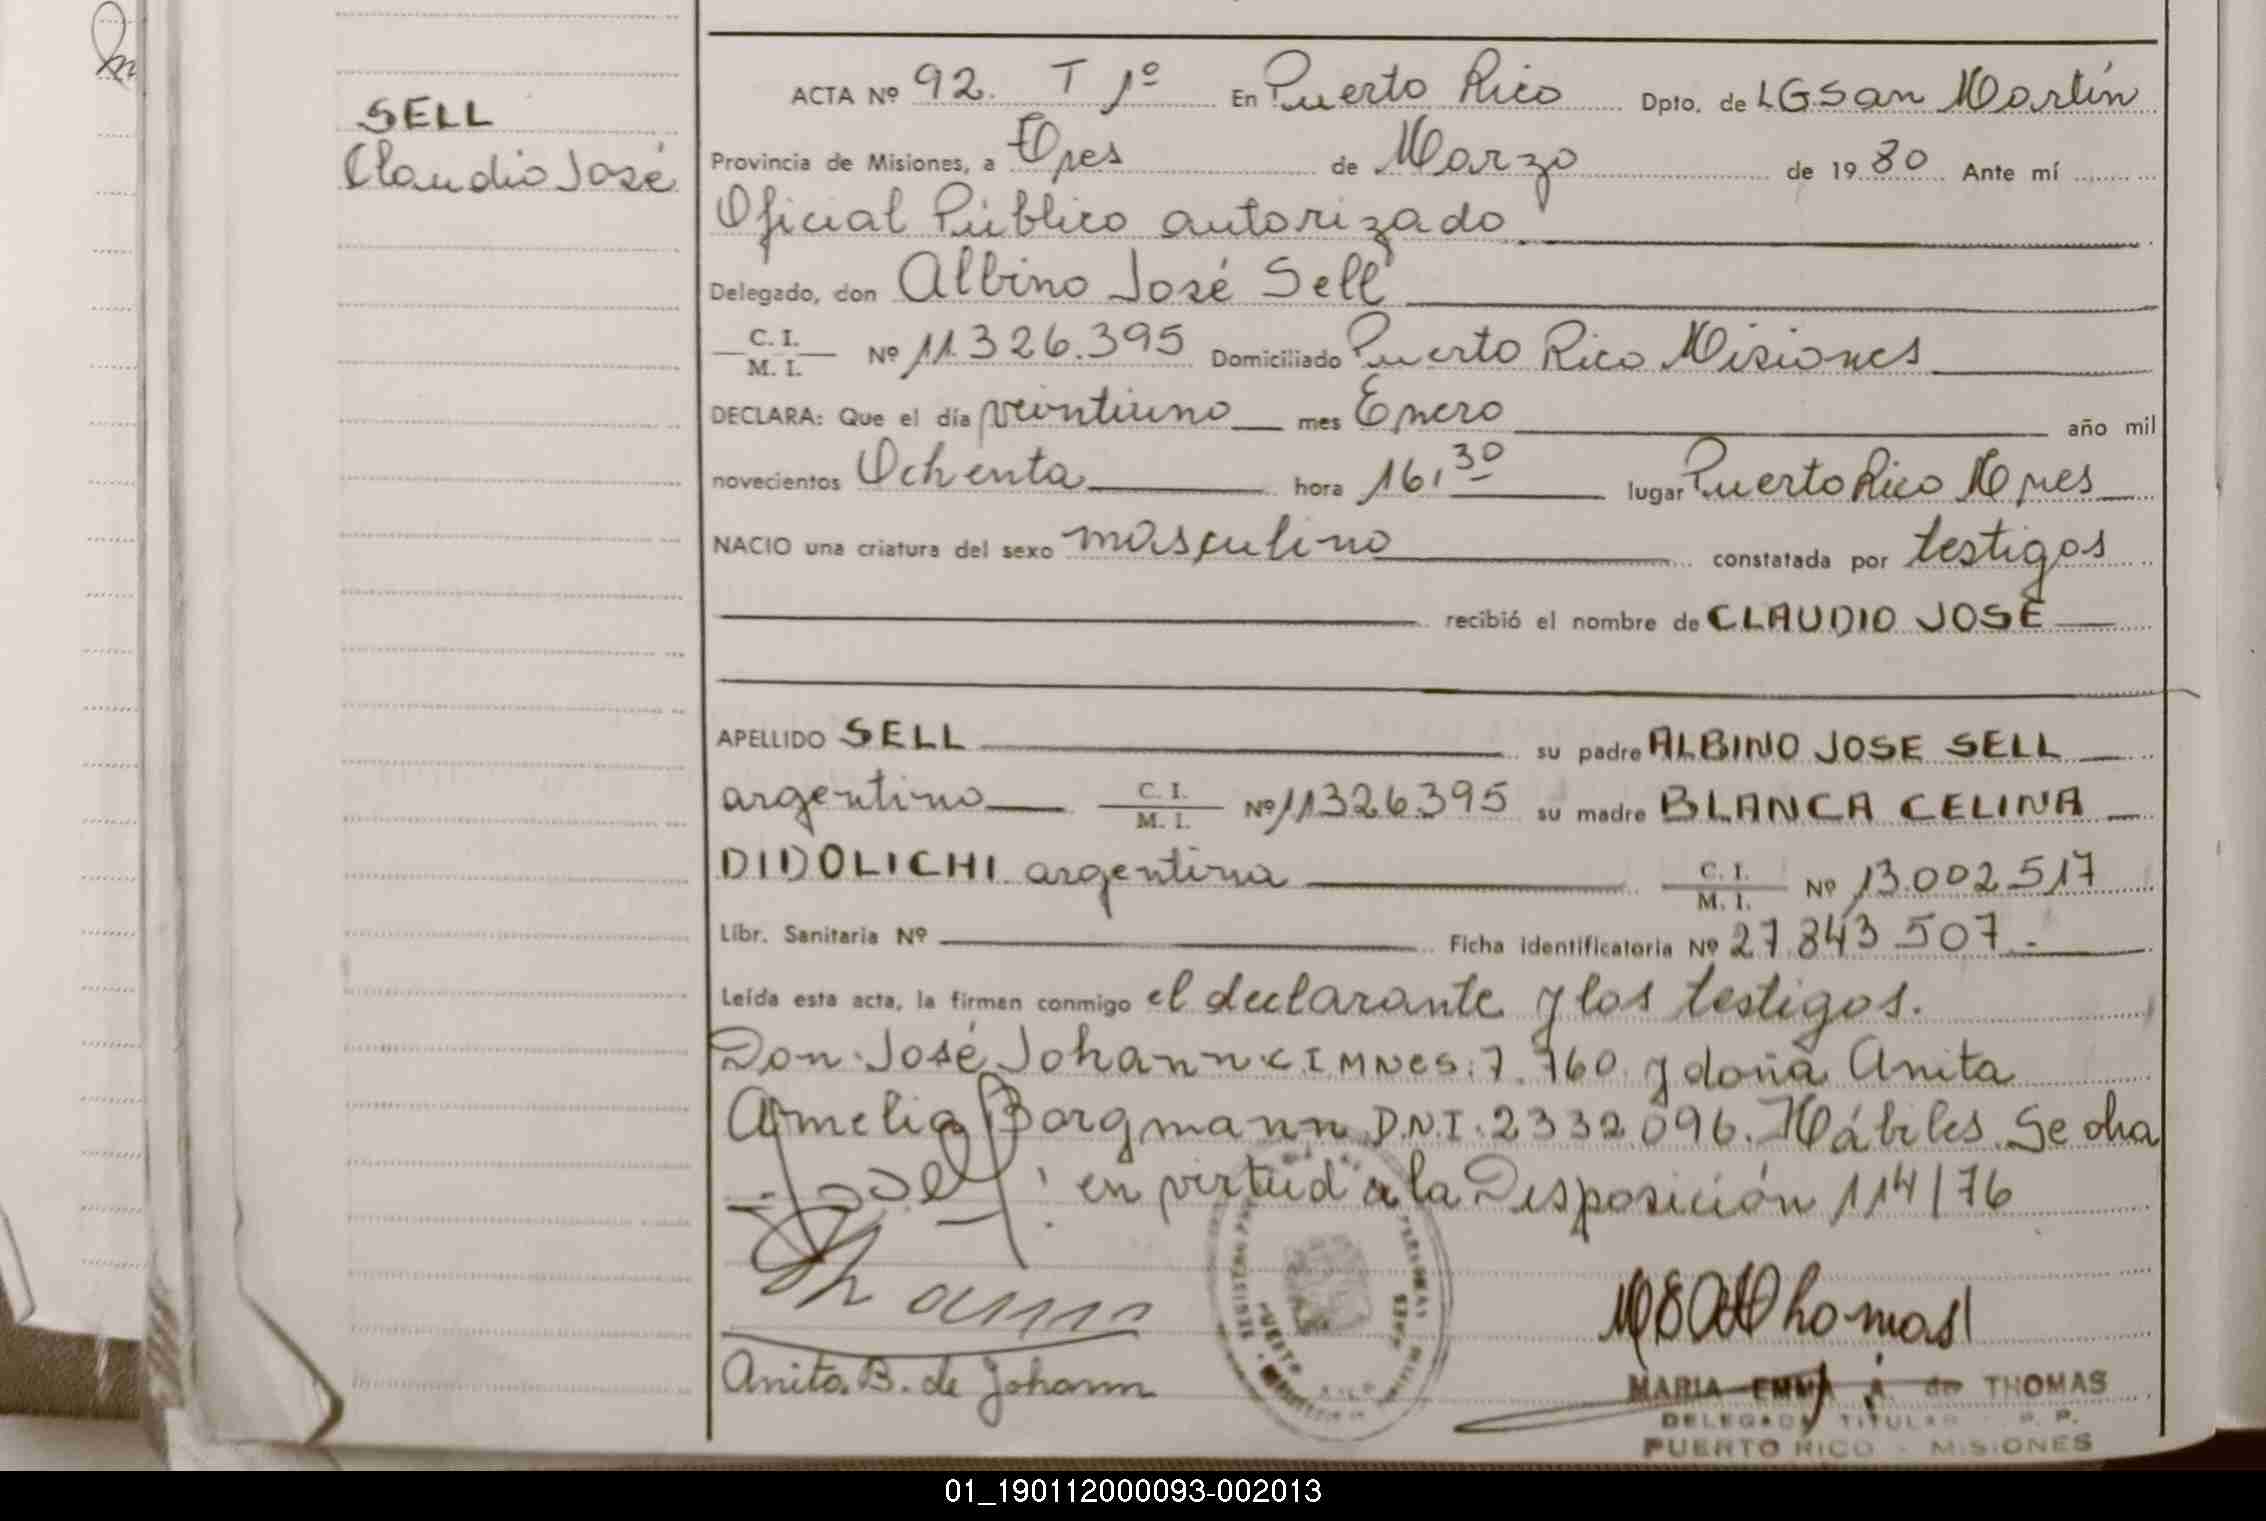 SELL
Claudio José
ACTA Nº 92. T 1º En Puerto Rico Dpto. de LGSan Martín
Provincia de Misiones, a Tres de Marzo de 1980 Ante mí
Oficial Público autorizado
Delegado, don Albino José Sell
C. I.
M. I. Nº 11.326.395 Domiciliado Puerto Rico Misiones
DECLARA: Que el día veintiuno mes Enero año mil
novecientos Ochenta hora 16,30 lugar Puerto Rico Mnes
NACIO una criatura del sexo masculino constatada por testigos
recibió el nombre de CLAUDIO JOSE
APELLIDO SELL su padre ALBINO JOSE SELL
argentino C. I.
M. I. Nº 11326.395 su madre BLANCA CELINA
DIDOLICHI argentina C. I.
M. I. Nº 13.002.517
Libr. Sanitaria Nº Ficha identificatoria Nº 27.843.507.-
Leída esta acta, la firman conmigo el declarante y los testigos.
Don José Johann C I MNES: 7.760 y doña Anita
Amelia Borgmann D.N.I. 2332.096. Hábiles. Se
en virtud a la Disposición 114/76
Anita B. de Johann
MEAThomas
MARIA EMMA A. de THOMAS
DELEGADA TITULAR R. P.
PUERTO RICO - MISIONES
01_190112000093-002013